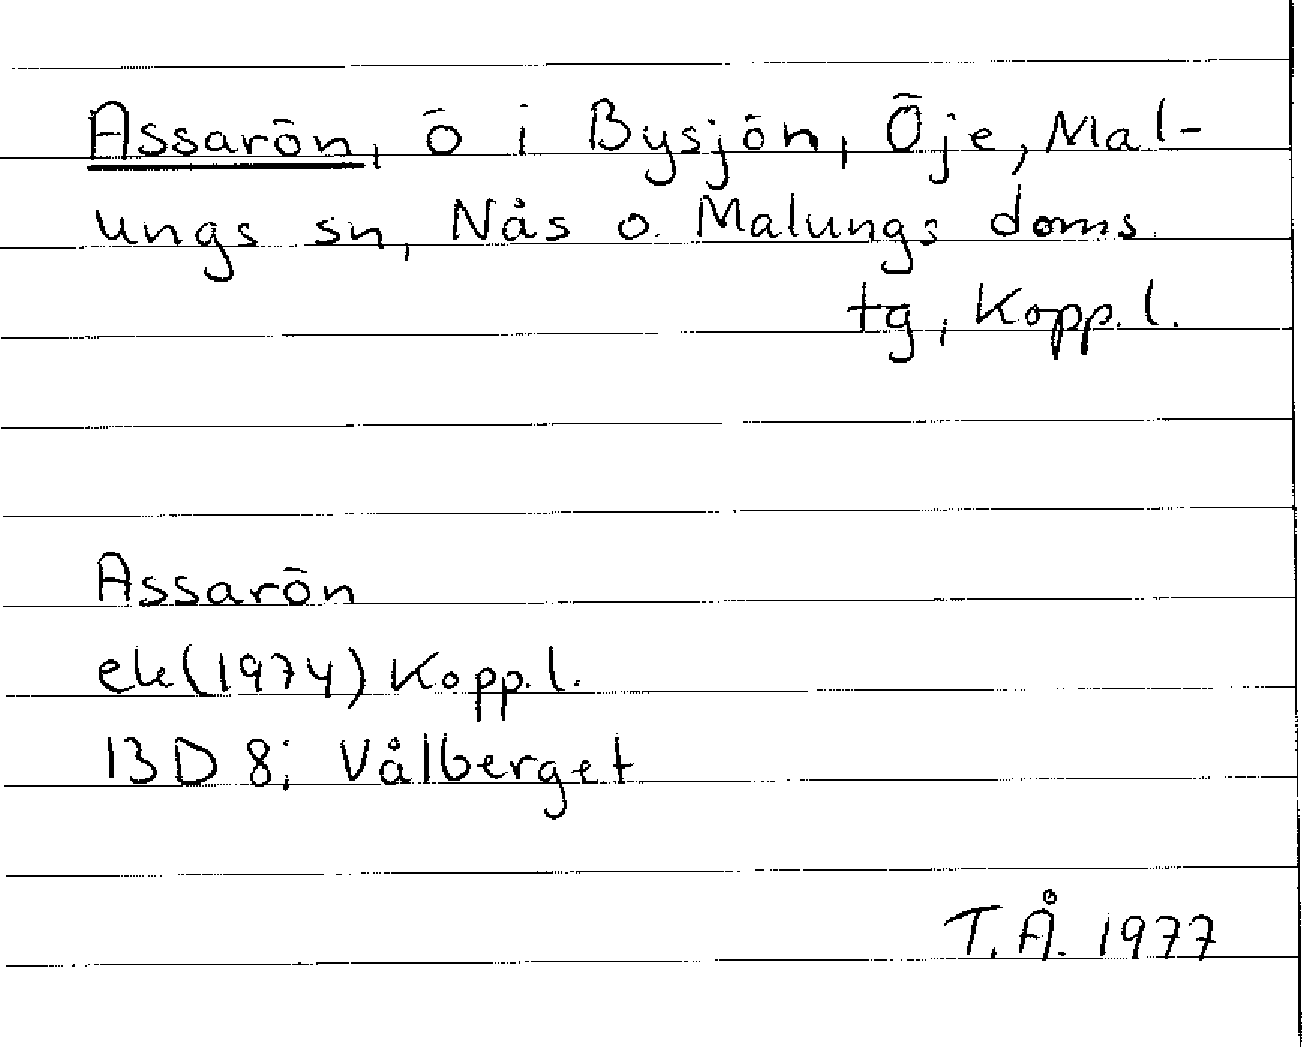 Assarön, ö i Bysjön, Öje, Mal-
ungs sn, Nås o. Malungs doms.
tg, Kopp. l.
Assarön
ek (1974) Kopp. l.
13D 8i Vålberget
T.Å. 1977